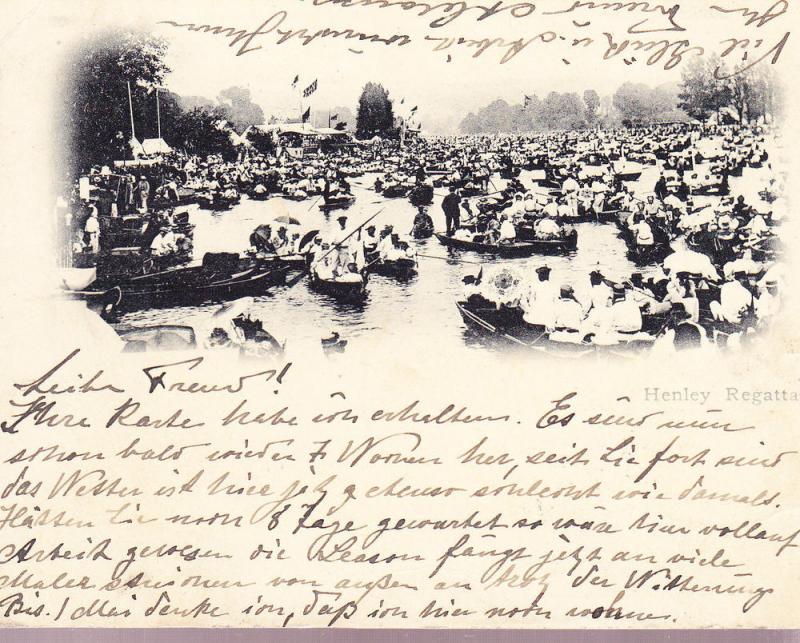 Henley Regatta
Lieber Freund!
Ihre Karte habe ich erhalten. Es sind nun
schon bald wieder 7 Wochen her, seit Sie fort sind
das Wetter ist hier jetzt ebenso schlecht wie damals.
Hätten Sie noch 8 Tage gewartet so wäre hier vollauf
Arbeit gewesen die Season fängt jetzt an viele
Maler streichen von außen an trotz der Witterung
Bis 1 Mai denke ich, daß ich hier noch wohne.
Viel Glück u. Arbeit wünscht Ihnen
Ihr Freund